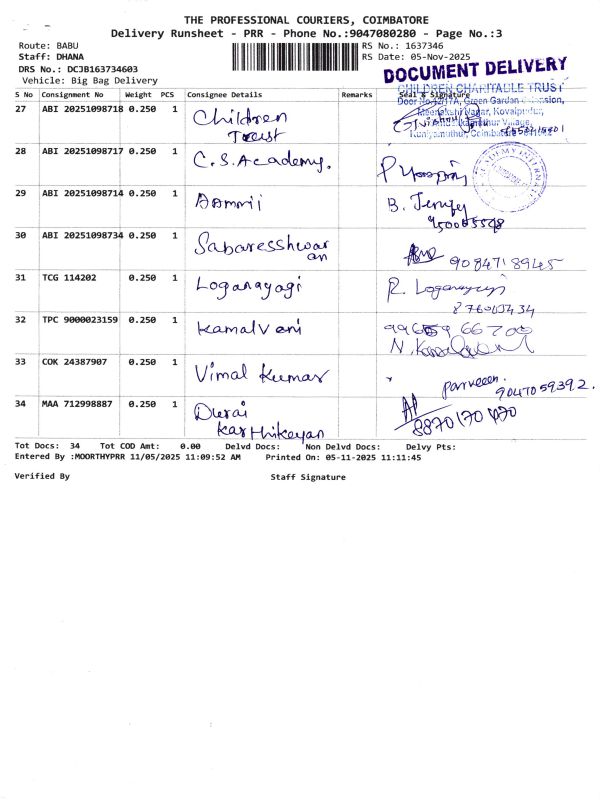 THE PROFESSIONAL COURIERS, COIMBATORE
Delivery Runsheet - PRR - Phone No.:9047080280 - Page No.:3
Route: BABU
RS No.: 1637346
Staff: DHANA
RS Date: 05-Nov-2025
DRS No.: DCJB163734603
Vehicle: Big Bag Delivery
DOCUMENT DELIVERY
S No Consignment No Weight PCS Consignee Details Remarks Seal & Signature
CHILDREN CHARITABLE TRUST
27 ABI 20251098718 0.250 1 Children Trust
28 ABI 20251098717 0.250 1 C.S.Academy.
29 ABI 20251098714 0.250 1 B.
30 ABI 20251098734 0.250 1 Sabaresshwaran
9084718945
31 TCG 114202 0.250 1 Loganayagi R. Loganayagi
32 TPC 9000023159 0.250 1 Kamalveni
33 COK 24387907 0.250 1 Vimal Kumar parveen.
9047059392.
34 MAA 712998887 0.250 1 Durai Karthikeyan
8870170470
Tot Docs: 34 Tot COD Amt: 0.00 Delvd Docs: Non Delvd Docs: Delvy Pts:
Entered By :MOORTHYPRR 11/05/2025 11:09:52 AM Printed On: 05-11-2025 11:11:45
Verified By Staff Signature